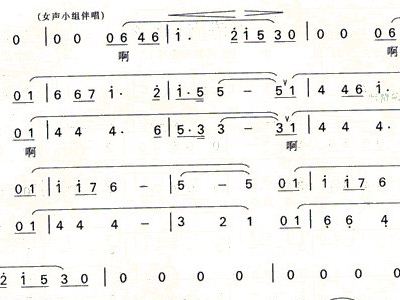 (女声小组伴唱)
0 | 0 0 0 6 4 6 | i · 2 i 5 3 0 | 0 0 0 6
啊 啊
0 1 | 6 6 7 i · 2 | i · 5 5 – 5 1 | 4 4 6 i ·
0 1 | 4 4 4 · 6 | 5 · 3 3 – 3 1 | 4 4 4 ·
啊 啊
0 1 | i i 7 6 – | 5 – 5 0 1 | i i 7 6
0 1 | 4 4 4 – | 3 2 1 0 1 | 6 6 4
2 i 5 3 0 | 0 0 0 0 | 0 0 0